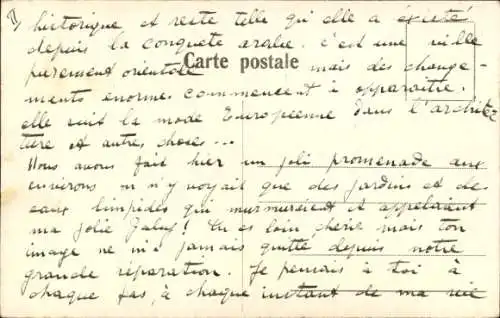 II
historique et reste telle qu'elle a existé
depuis la conquete arabe. c'est une ville
purement orientale mais des change-
Carte postale
ments enormes commencent à apparaitre.
elle suit la mode Europeenne dans l'architec
ture et autres choses...
Nous avons fait hier un joli promenade aux
environs on n'y voyait que des jardins et des
eaux limpides qui murmuraient et appelaient
ma jolie Tu es loin cherie mais ton
image ne m'a jamais quitté depuis notre
grande séparation. Je pensais à toi à
chaque pas, à chaque instant de ma vie